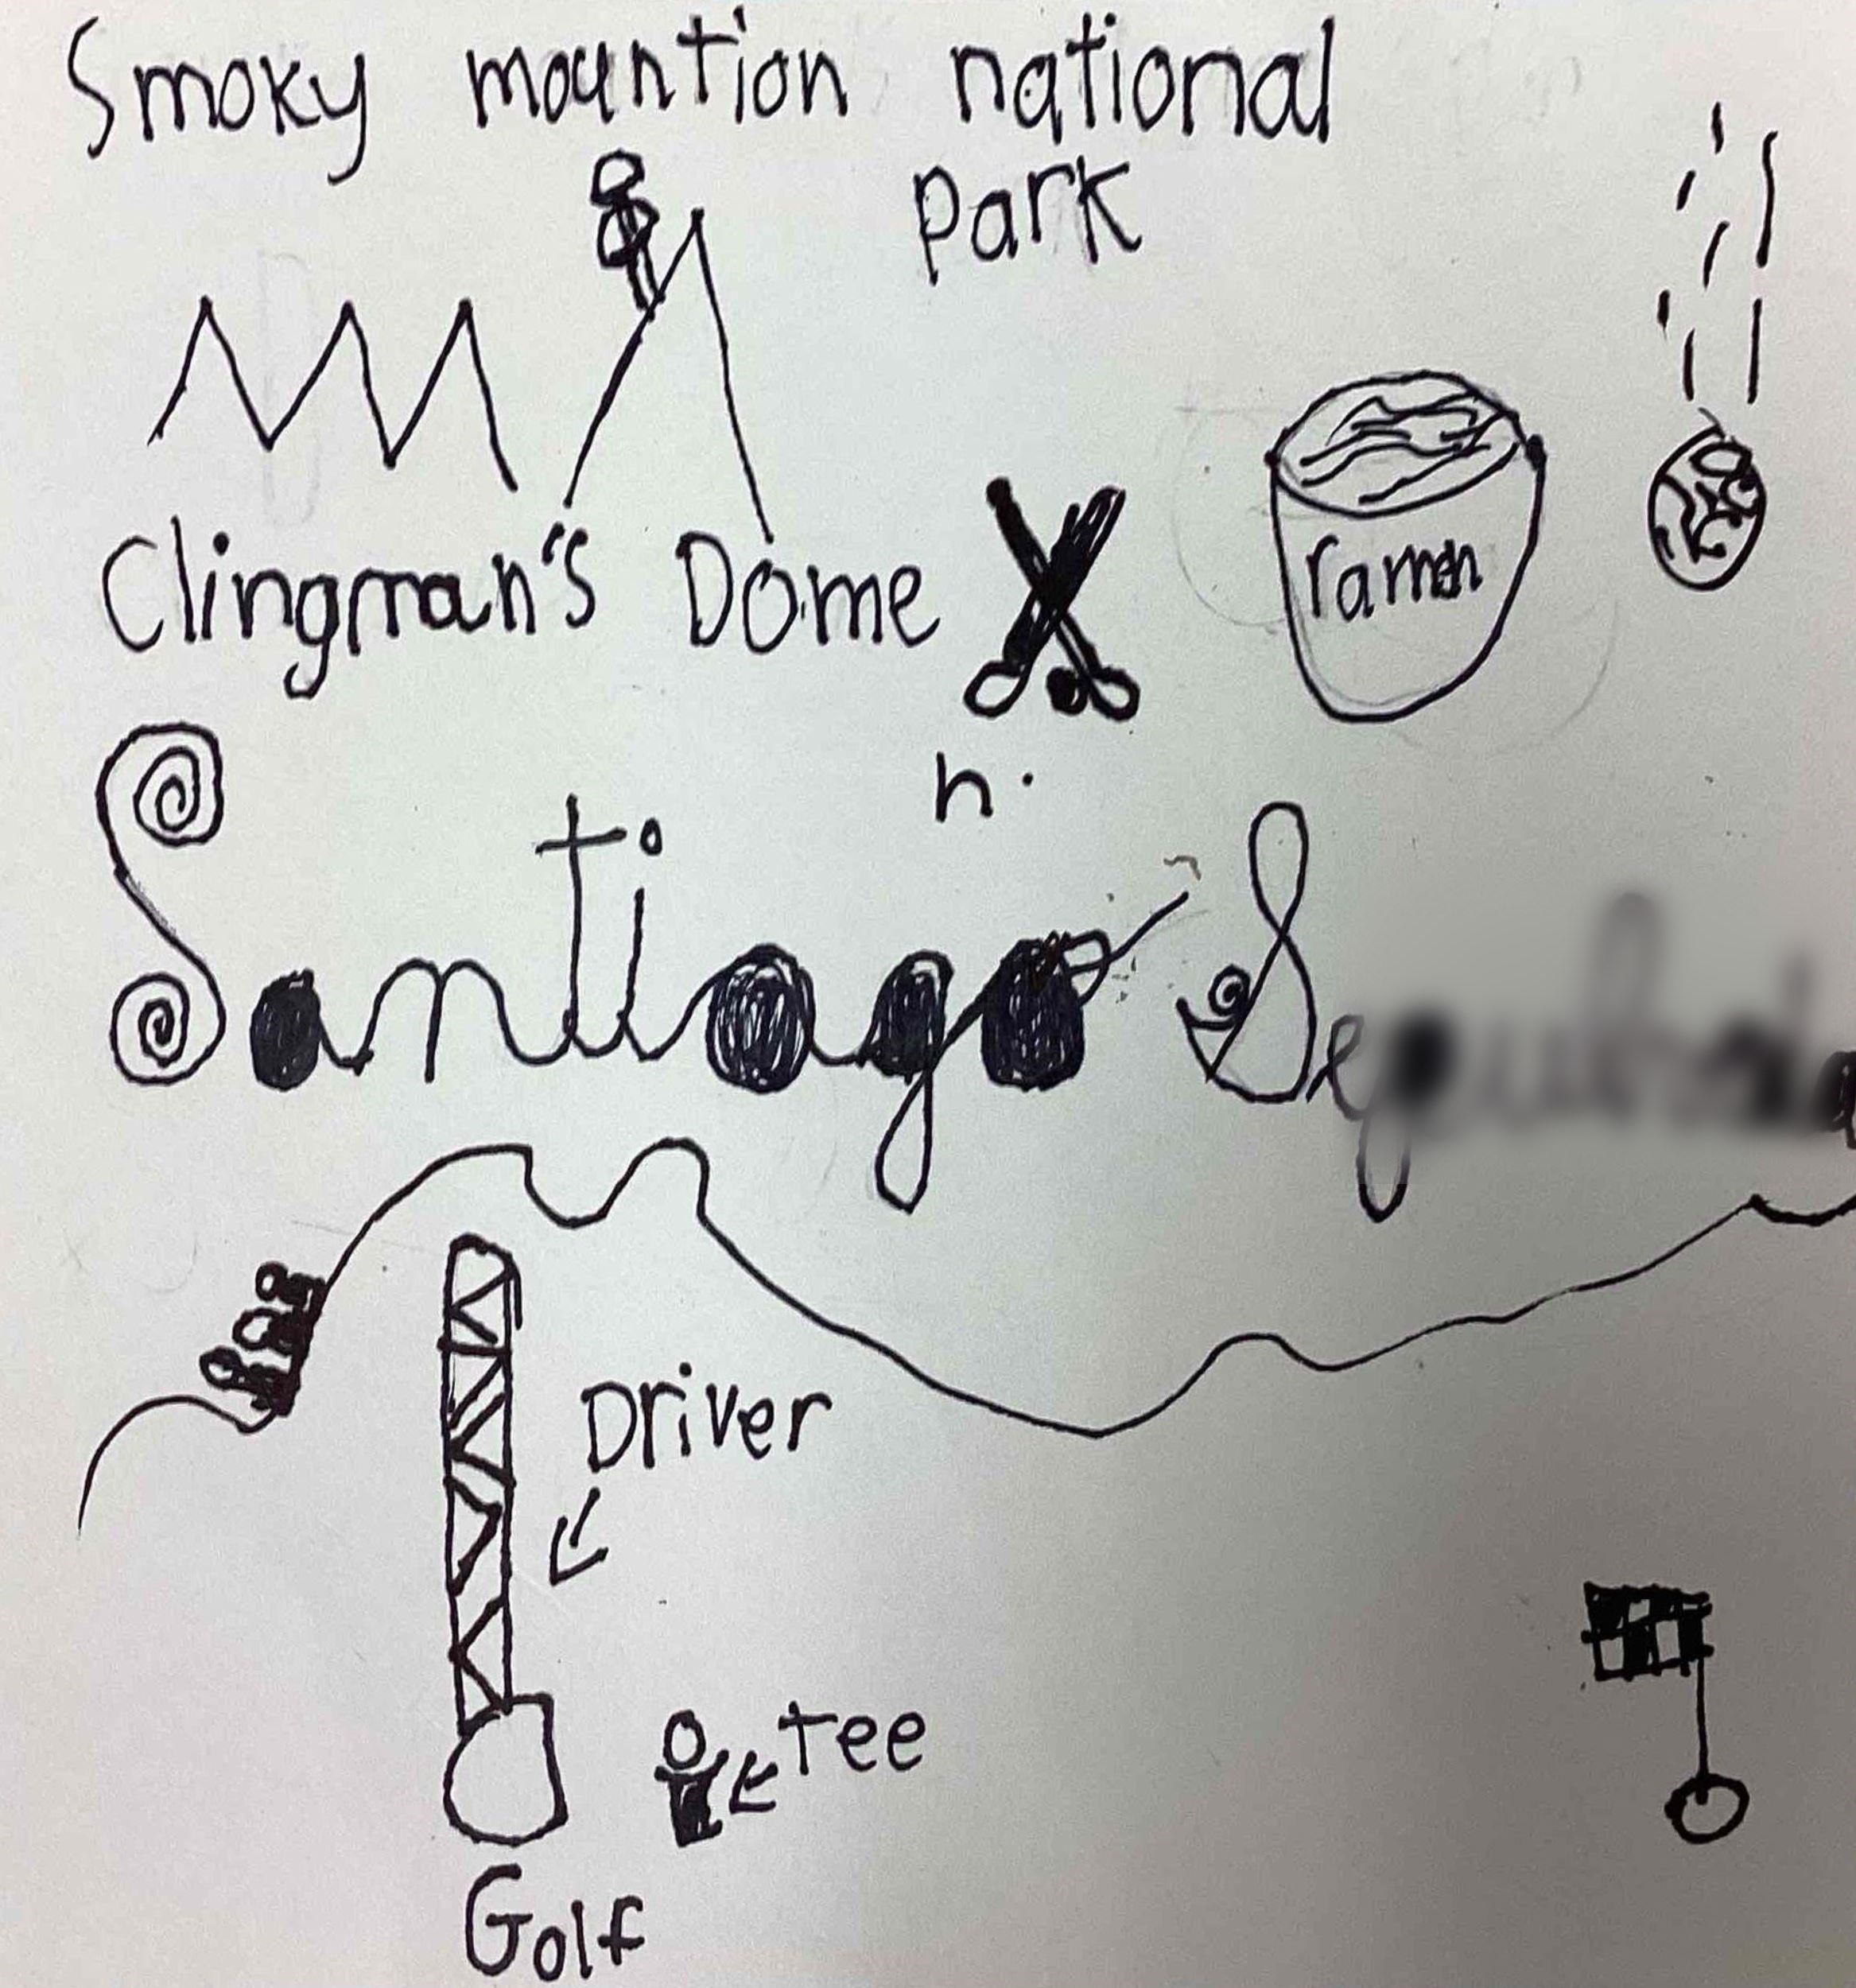 Smoky mountion national
park
Clingman's Dome
ramen
n.
Santiago
Driver
tee
Golf